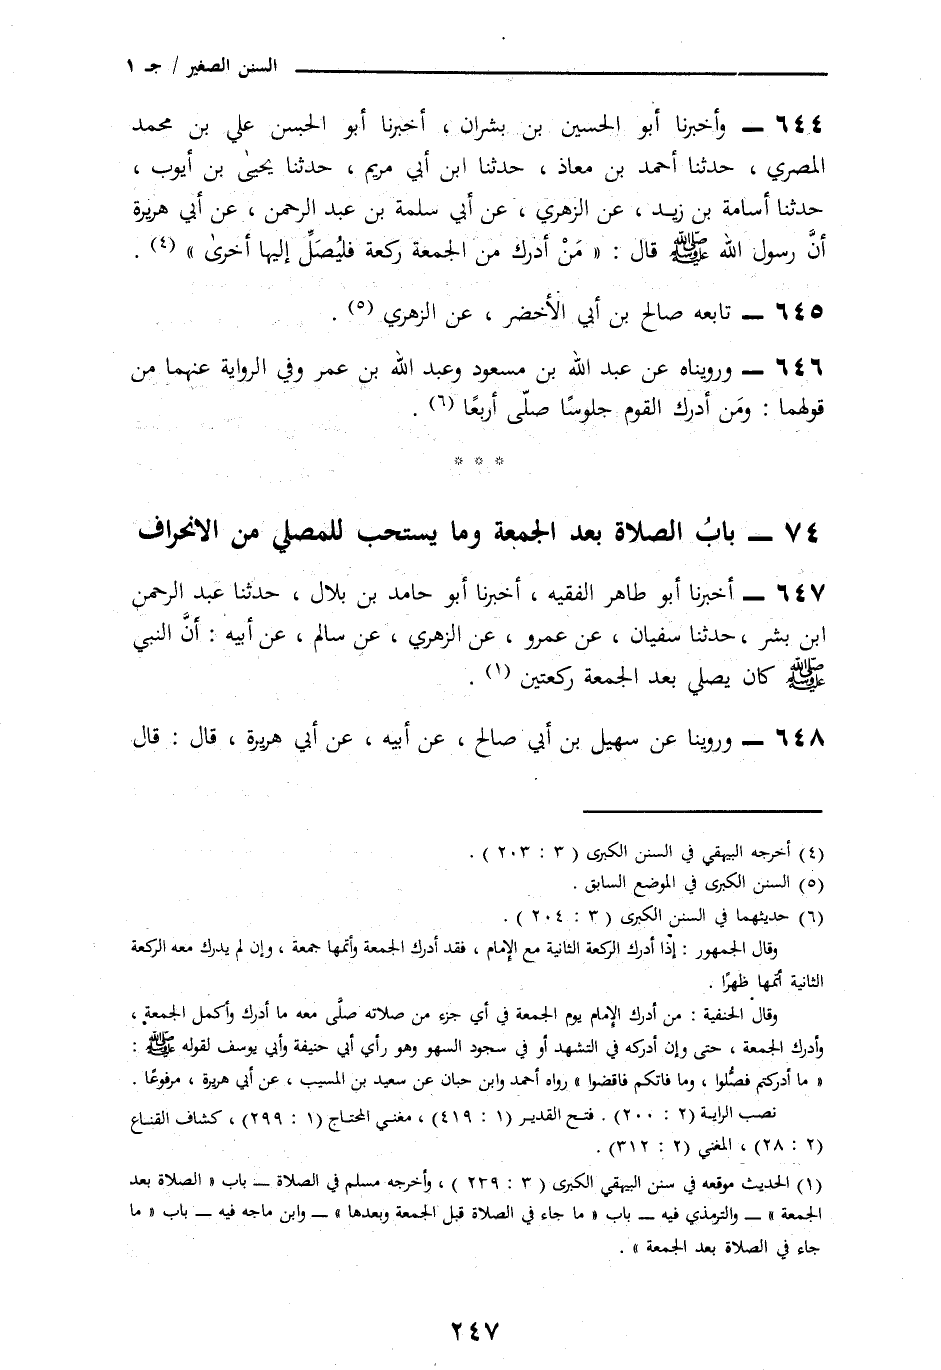 السنن الصغير / جـ ١
٦٤٤ ــ وأخبرنا أبو الحسين بن بشران ، أخبرنا أبو الحسن علي بن محمد
المصري ، حدثنا أحمد بن معاذ ، حدثنا ابن أبي مريم ، حدثنا يحيىٰ بن أيوب ،
حدثنا أسامة بن زيـد ، عن الزهري ، عن أبي سلمة بن عبد الرحمن ، عن أبي هريرة
أنَّ رسول الله ﷺ قال : « مَنْ أدرك من الجمعة ركعة فليُصَلِّ إليها أخرىٰ » (٤) .
٦٤٥ ــ تابعه صالح بن أبي الأخضر ، عن الزهري (٥) .
٦٤٦ ــ ورويناه عن عبد الله بن مسعود وعبد الله بن عمر وفي الرواية عنهما من
قولهما : ومَن أدرك القوم جلوسًا صلّى أربعًا (٦) .
* * *
٧٤ ــ بابُ الصلاة بعد الجمعة وما يستحب للمصلي من الانحراف
٦٤٧ ــ أخبرنا أبو طاهر الفقيه ، أخبرنا أبو حامد بن بلال ، حدثنا عبد الرحمن
ابن بشر ، حدثنا سفيان ، عن عمرو ، عن الزهري ، عن سالم ، عن أبيه : أنَّ النبي
ﷺ كان يصلي بعد الجمعة ركعتين (١) .
٦٤٨ ــ وروينا عن سهيل بن أبي صالح ، عن أبيه ، عن أبي هريرة ، قال : قال
(٤) أخرجه البيهقي في السنن الكبرى ( ٣ : ٢٠٣ ) .
(٥) السنن الكبرى في الموضع السابق .
(٦) حديثهما في السنن الكبرى ( ٣ : ٢٠٤ ) .
وقال الجمهور : إذا أدرك الركعة الثانية مع الإمام ، فقد أدرك الجمعة وأتمها جمعة ، وإن لم يدرك معه الركعة
الثانية أتمها ظهرًا .
وقال الحنفية : من أدرك الإمام يوم الجمعة في أي جزء من صلاته صلَّى معه ما أدرك وأكمل الجمعة ،
وأدرك الجمعة ، حتى وإن أدركه في التشهد أو في سجود السهو وهو رأي أبي حنيفة وأبي يوسف لقوله ﷺ :
« ما أدركتم فصُّلوا ، وما فاتكم فاقضوا » رواه أحمد وابن حبان عن سعيد بن المسيب ، عن أبي هريرة ، مرفوعًا .
نصب الراية (٢ : ٢٠٠) . فتـح القديـر (١ : ٤١٩) ، مغنـي المحتـاج (١ : ٢٩٩) ، كشاف القنـاع
(٢ : ٢٨) ، المغني (٢ : ٣١٢) .
(١) الحديث موقعه في سنن البيهقي الكبرى ( ٣ : ٢٣٩ ) ، وأخرجه مسلم في الصلاة ــ باب « الصلاة بعد
الجمعة » ــ والترمذي فيه ــ باب « ما جاء في الصلاة قبل الجمعة وبعدها » ــ وابن ماجه فيه ــ باب « ما
جاء في الصلاة بعد الجمعة » .
٢٤٧